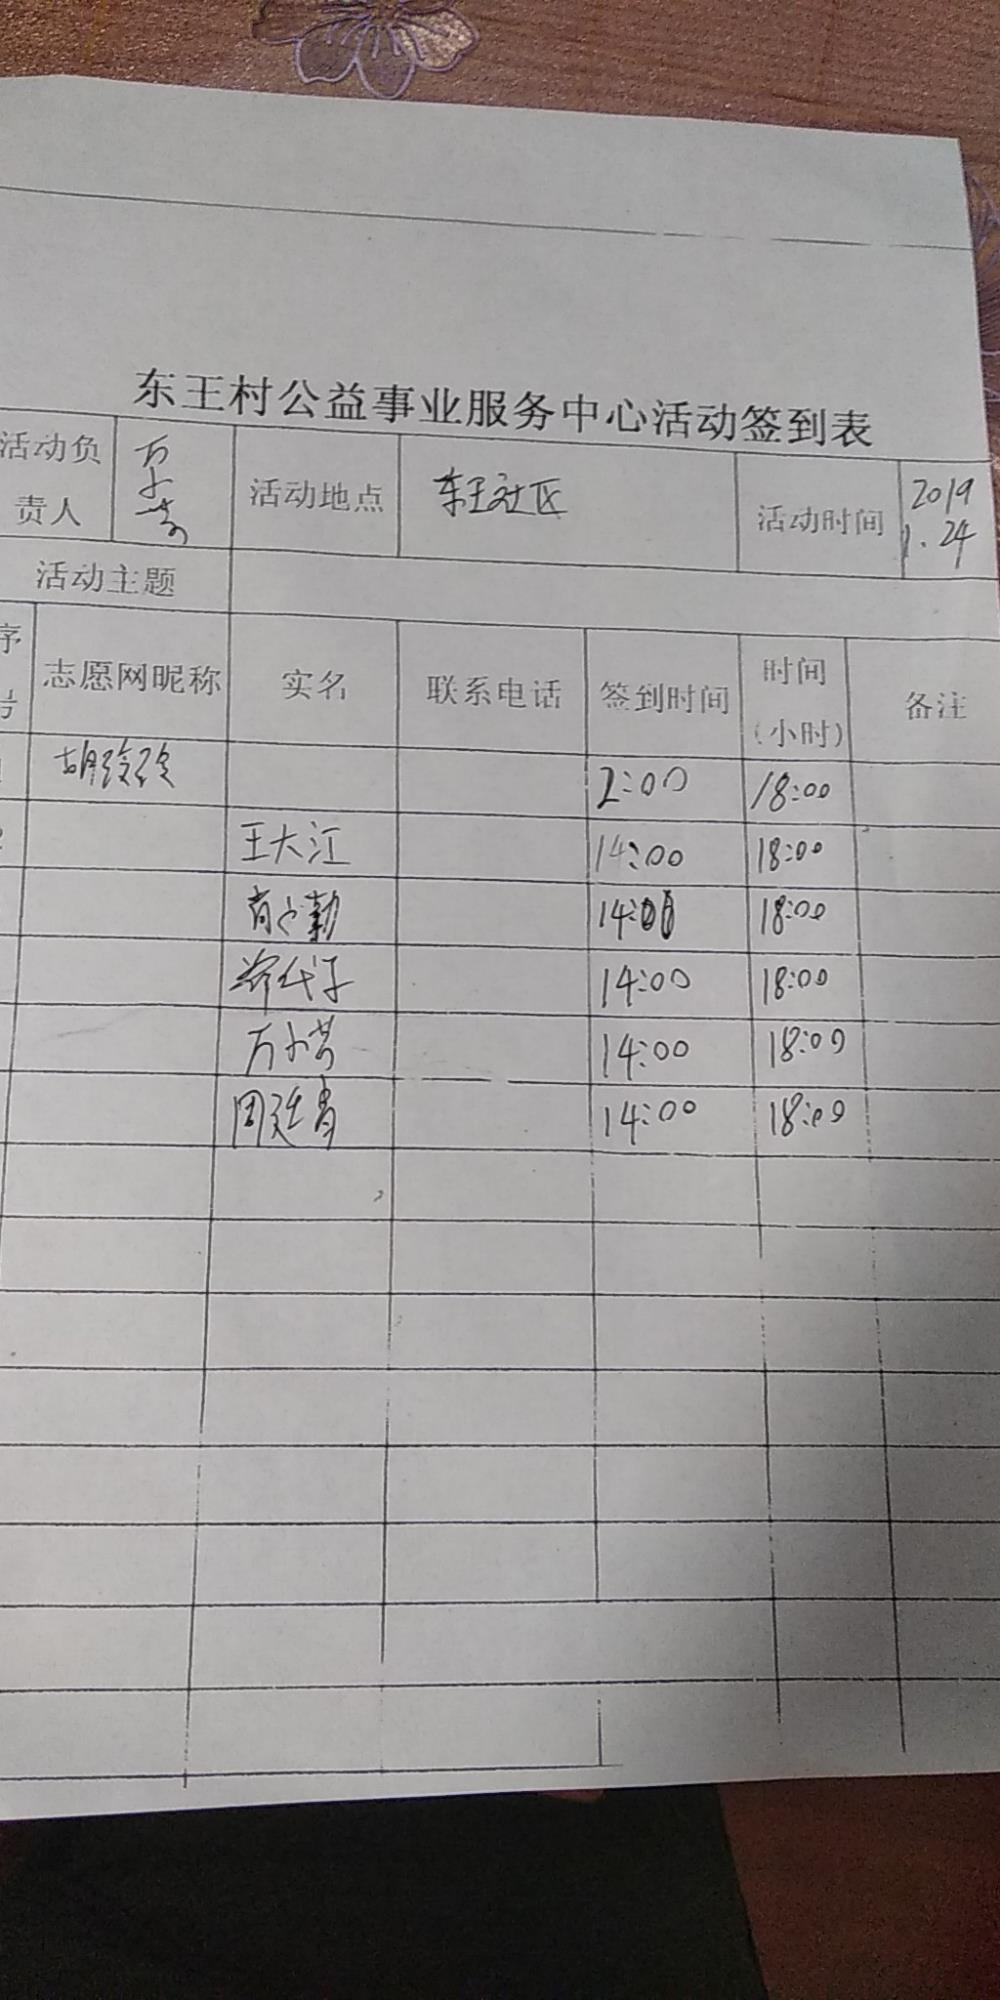 东王村公益事业服务中心活动签到表
活动负责人 万小芳 活动地点 东王社区 活动时间 2019 1.24
活动主题
序号 志愿网昵称 实名 联系电话 签到时间 时间(小时) 备注
胡玲玲 2:00 18:00
王大江 14:00 18:00
14:00 18:00
14:00 18:00
万小芳 14:00 18:00
周廷青 14:00 18:00